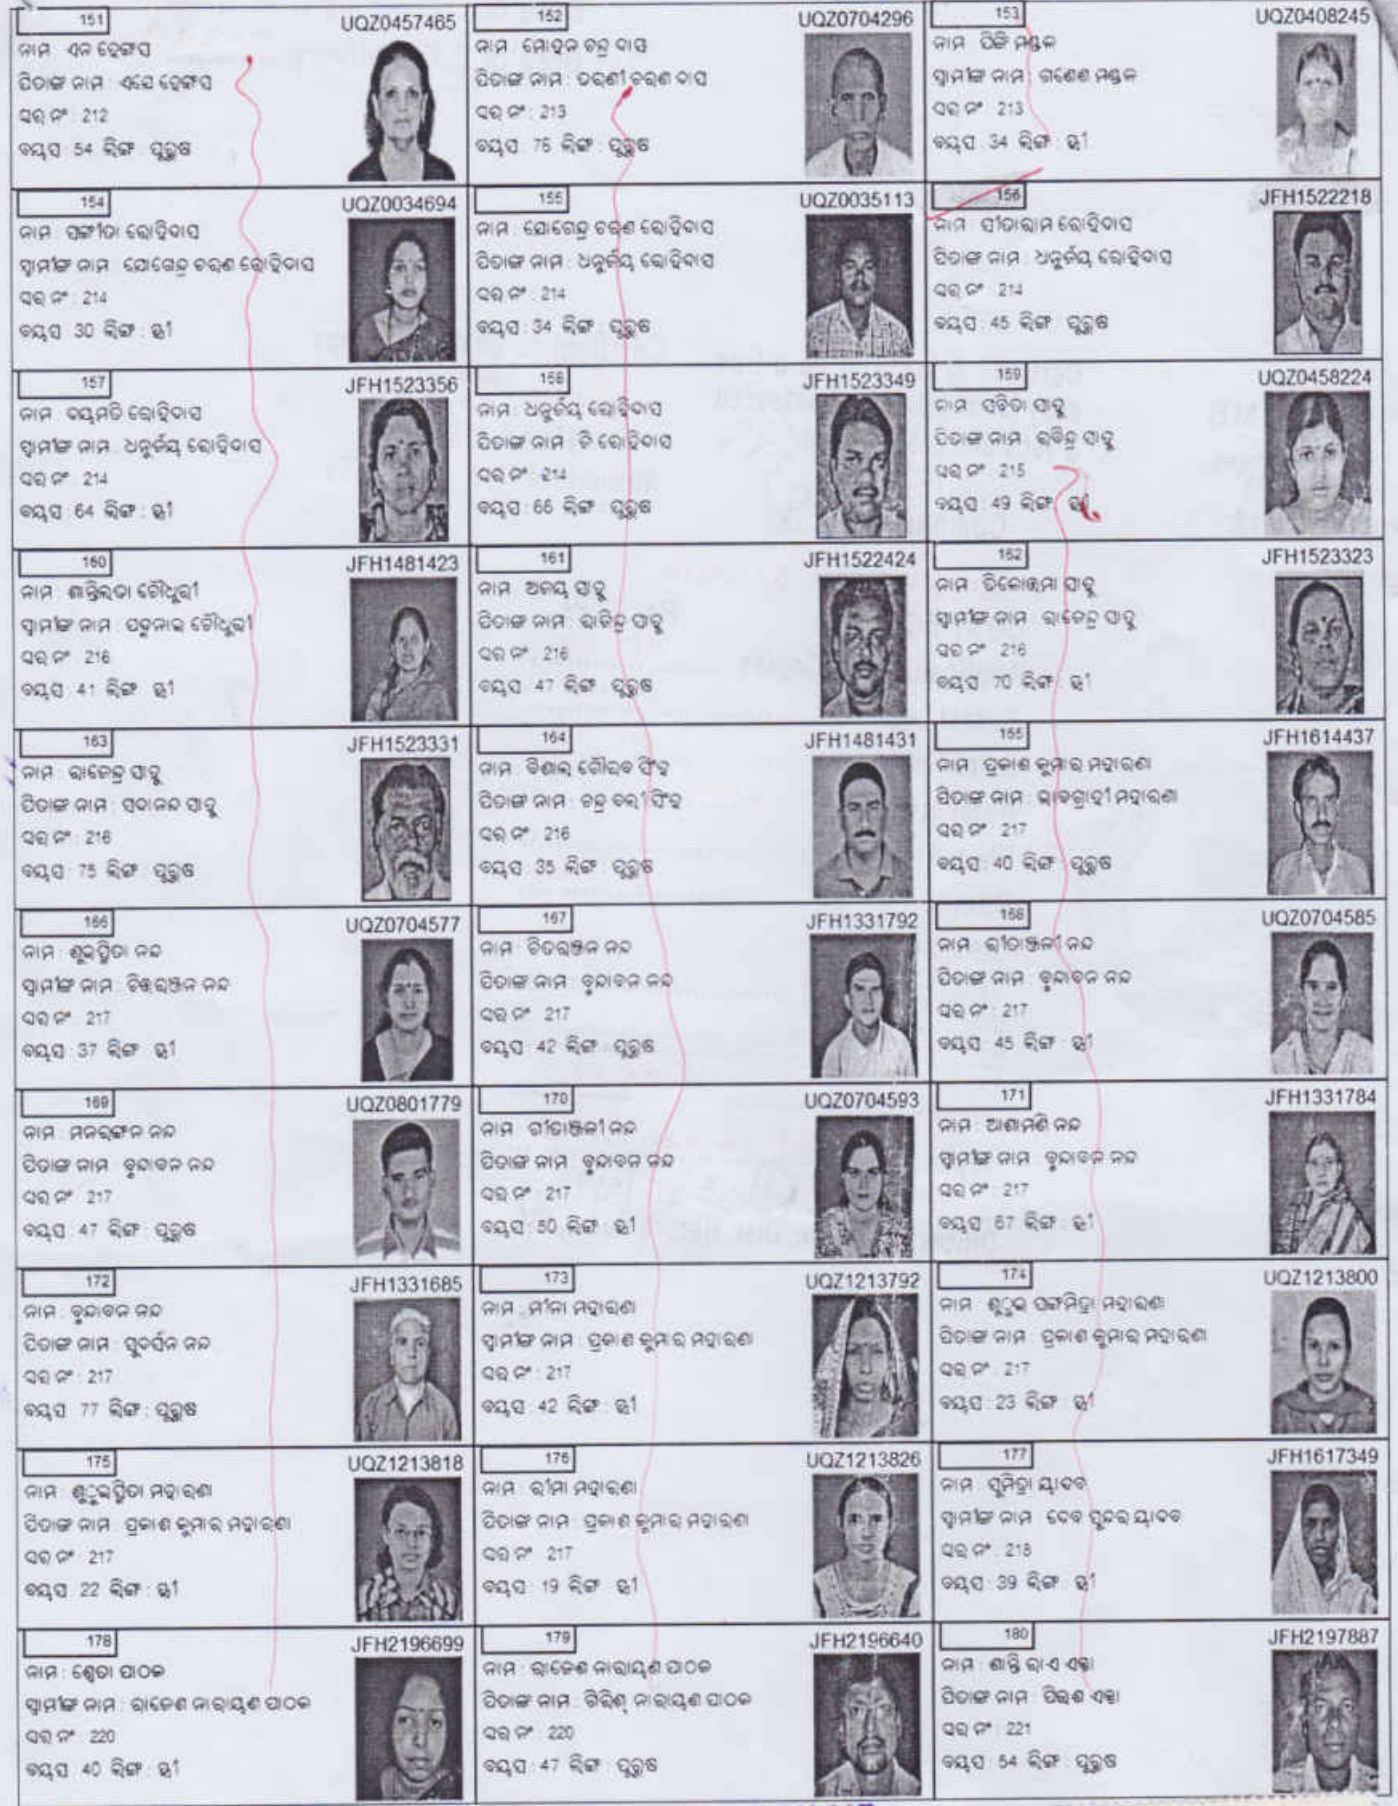 151 UQZ0457465
ନାମ : ଏନ ହେଙ୍ଗସ
ପିତାଙ୍କ ନାମ : ଏସେ ହେଙ୍ଗସ
ଘର ନଂ : 212
ବୟସ : 54 ଲିଙ୍ଗ : ପୁରୁଷ
152 UQZ0704296
ନାମ : ମୋହନ ଚନ୍ଦ୍ର ଦାସ
ପିତାଙ୍କ ନାମ : ତରଣୀ ଚରଣ ଦାସ
ଘର ନଂ : 213
ବୟସ : 75 ଲିଙ୍ଗ : ପୁରୁଷ
153 UQZ0408245
ନାମ : ପିଙ୍କି ମଣ୍ଡଳ
ସ୍ୱାମୀଙ୍କ ନାମ : ଗଣେଶ ମଣ୍ଡଳ
ଘର ନଂ : 213
ବୟସ : 34 ଲିଙ୍ଗ : ସ୍ତ୍ରୀ
154 UQZ0034694
ନାମ : ସଙ୍ଗୀତା ରୋହିଦାସ
ସ୍ୱାମୀଙ୍କ ନାମ : ଯୋଗେନ୍ଦ୍ର ଚରଣ ରୋହିଦାସ
ଘର ନଂ : 214
ବୟସ : 30 ଲିଙ୍ଗ : ସ୍ତ୍ରୀ
155 UQZ0035113
ନାମ : ଯୋଗେନ୍ଦ୍ର ଚରଣ ରୋହିଦାସ
ପିତାଙ୍କ ନାମ : ଧନୁର୍ଜୟ ରୋହିଦାସ
ଘର ନଂ : 214
ବୟସ : 34 ଲିଙ୍ଗ : ପୁରୁଷ
156 JFH1522218
ନାମ : ସୀତାରାମ ରୋହିଦାସ
ପିତାଙ୍କ ନାମ : ଧନୁର୍ଜୟ ରୋହିଦାସ
ଘର ନଂ : 214
ବୟସ : 45 ଲିଙ୍ଗ : ପୁରୁଷ
157 JFH1523356
ନାମ : ଦୟମତି ରୋହିଦାସ
ସ୍ୱାମୀଙ୍କ ନାମ : ଧନୁର୍ଜୟ ରୋହିଦାସ
ଘର ନଂ : 214
ବୟସ : 64 ଲିଙ୍ଗ : ସ୍ତ୍ରୀ
158 JFH1523349
ନାମ : ଧନୁର୍ଜୟ ରୋହିଦାସ
ପିତାଙ୍କ ନାମ : ଚି ରୋହିଦାସ
ଘର ନଂ : 214
ବୟସ : 66 ଲିଙ୍ଗ : ପୁରୁଷ
159 UQZ0458224
ନାମ : ସବିତା ସାହୁ
ପିତାଙ୍କ ନାମ : ରବିନ୍ଦ୍ର ସାହୁ
ଘର ନଂ : 215
ବୟସ : 49 ଲିଙ୍ଗ : ସ୍ତ୍ରୀ
160 JFH1481423
ନାମ : ଶାନ୍ତିଲତା ଚୌଧୁରୀ
ସ୍ୱାମୀଙ୍କ ନାମ : ପଦୁନାଭ ଚୌଧୁରୀ
ଘର ନଂ : 216
ବୟସ : 41 ଲିଙ୍ଗ : ସ୍ତ୍ରୀ
161 JFH1522424
ନାମ : ଅଜୟ ସାହୁ
ପିତାଙ୍କ ନାମ : ରାଜିନ୍ଦ୍ର ସାହୁ
ଘର ନଂ : 216
ବୟସ : 47 ଲିଙ୍ଗ : ପୁରୁଷ
162 JFH1523323
ନାମ : ତିଳୋତ୍ତମା ସାହୁ
ସ୍ୱାମୀଙ୍କ ନାମ : ରାଜେନ୍ଦ୍ର ସାହୁ
ଘର ନଂ : 216
ବୟସ : 70 ଲିଙ୍ଗ : ସ୍ତ୍ରୀ
163 JFH1523331
ନାମ : ରାଜେନ୍ଦ୍ର ସାହୁ
ପିତାଙ୍କ ନାମ : ସଦାନନ୍ଦ ସାହୁ
ଘର ନଂ : 216
ବୟସ : 75 ଲିଙ୍ଗ : ପୁରୁଷ
164 JFH1481431
ନାମ : ବିଶାଲ ଗୌରବ ସିଂହ
ପିତାଙ୍କ ନାମ : ଚନ୍ଦ୍ର ବଲୀ ସିଂହ
ଘର ନଂ : 216
ବୟସ : 35 ଲିଙ୍ଗ : ପୁରୁଷ
165 JFH1614437
ନାମ : ପ୍ରକାଶ କୁମାର ମହାରଣା
ପିତାଙ୍କ ନାମ : ଭାବଗ୍ରାହୀ ମହାରଣା
ଘର ନଂ : 217
ବୟସ : 40 ଲିଙ୍ଗ : ପୁରୁଷ
166 UQZ0704577
ନାମ : ଶୁଭସ୍ମିତା ନନ୍ଦ
ସ୍ୱାମୀଙ୍କ ନାମ : ଚିତ୍ତରଞ୍ଜନ ନନ୍ଦ
ଘର ନଂ : 217
ବୟସ : 37 ଲିଙ୍ଗ : ସ୍ତ୍ରୀ
167 JFH1331792
ନାମ : ଚିତରଞ୍ଜନ ନନ୍ଦ
ପିତାଙ୍କ ନାମ : ବୃନ୍ଦାବନ ନନ୍ଦ
ଘର ନଂ : 217
ବୟସ : 42 ଲିଙ୍ଗ : ପୁରୁଷ
168 UQZ0704585
ନାମ : ରୀତାଞ୍ଜଳୀ ନନ୍ଦ
ପିତାଙ୍କ ନାମ : ବୃନ୍ଦାବନ ନନ୍ଦ
ଘର ନଂ : 217
ବୟସ : 45 ଲିଙ୍ଗ : ସ୍ତ୍ରୀ
169 UQZ0801779
ନାମ : ମନରଞ୍ଜନ ନନ୍ଦ
ପିତାଙ୍କ ନାମ : ବୃନ୍ଦାବନ ନନ୍ଦ
ଘର ନଂ : 217
ବୟସ : 47 ଲିଙ୍ଗ : ପୁରୁଷ
170 UQZ0704593
ନାମ : ଗୀତାଞ୍ଜଳୀ ନନ୍ଦ
ପିତାଙ୍କ ନାମ : ବୃନ୍ଦାବନ ନନ୍ଦ
ଘର ନଂ : 217
ବୟସ : 50 ଲିଙ୍ଗ : ସ୍ତ୍ରୀ
171 JFH1331784
ନାମ : ଆଶାମଣି ନନ୍ଦ
ସ୍ୱାମୀଙ୍କ ନାମ : ବୃନ୍ଦାବନ ନନ୍ଦ
ଘର ନଂ : 217
ବୟସ : 67 ଲିଙ୍ଗ : ସ୍ତ୍ରୀ
172 JFH1331685
ନାମ : ବୃନ୍ଦାବନ ନନ୍ଦ
ପିତାଙ୍କ ନାମ : ସୁଦର୍ସନ ନନ୍ଦ
ଘର ନଂ : 217
ବୟସ : 77 ଲିଙ୍ଗ : ପୁରୁଷ
173 UQZ1213792
ନାମ : ମୀନା ମହାରଣା
ସ୍ୱାମୀଙ୍କ ନାମ : ପ୍ରକାଶ କୁମାର ମହାରଣା
ଘର ନଂ : 217
ବୟସ : 42 ଲିଙ୍ଗ : ସ୍ତ୍ରୀ
174 UQZ1213800
ନାମ : ଶୁଭ ସଙ୍ଗମିତ୍ରା ମହାରଣା
ପିତାଙ୍କ ନାମ : ପ୍ରକାଶ କୁମାର ମହାରଣା
ଘର ନଂ : 217
ବୟସ : 23 ଲିଙ୍ଗ : ସ୍ତ୍ରୀ
175 UQZ1213818
ନାମ : ଶୁଭସ୍ମିତା ମହାରଣା
ପିତାଙ୍କ ନାମ : ପ୍ରକାଶ କୁମାର ମହାରଣା
ଘର ନଂ : 217
ବୟସ : 22 ଲିଙ୍ଗ : ସ୍ତ୍ରୀ
176 UQZ1213826
ନାମ : ରୀମା ମହାରଣା
ପିତାଙ୍କ ନାମ : ପ୍ରକାଶ କୁମାର ମହାରଣା
ଘର ନଂ : 217
ବୟସ : 19 ଲିଙ୍ଗ : ସ୍ତ୍ରୀ
177 JFH1617349
ନାମ : ସୁମିତ୍ରା ୟାଦବ
ସ୍ୱାମୀଙ୍କ ନାମ : ଦେବ ସୁନ୍ଦର ୟାଦବ
ଘର ନଂ : 218
ବୟସ : 39 ଲିଙ୍ଗ : ସ୍ତ୍ରୀ
178 JFH2196699
ନାମ : ଶ୍ୱେତା ପାଠକ
ସ୍ୱାମୀଙ୍କ ନାମ : ରାଜେଶ ନାରାୟଣ ପାଠକ
ଘର ନଂ : 220
ବୟସ : 40 ଲିଙ୍ଗ : ସ୍ତ୍ରୀ
179 JFH2196640
ନାମ : ରାଜେଶ ନାରାୟଣ ପାଠକ
ପିତାଙ୍କ ନାମ : ଗିରିଶ୍ ନାରାୟଣ ପାଠକ
ଘର ନଂ : 220
ବୟସ : 47 ଲିଙ୍ଗ : ପୁରୁଷ
180 JFH2197887
ନାମ : ଶାନ୍ତି ରାଏ ଏକ୍କା
ପିତାଙ୍କ ନାମ : ପିରଶ ଏକ୍କା
ଘର ନଂ : 221
ବୟସ : 54 ଲିଙ୍ଗ : ପୁରୁଷ